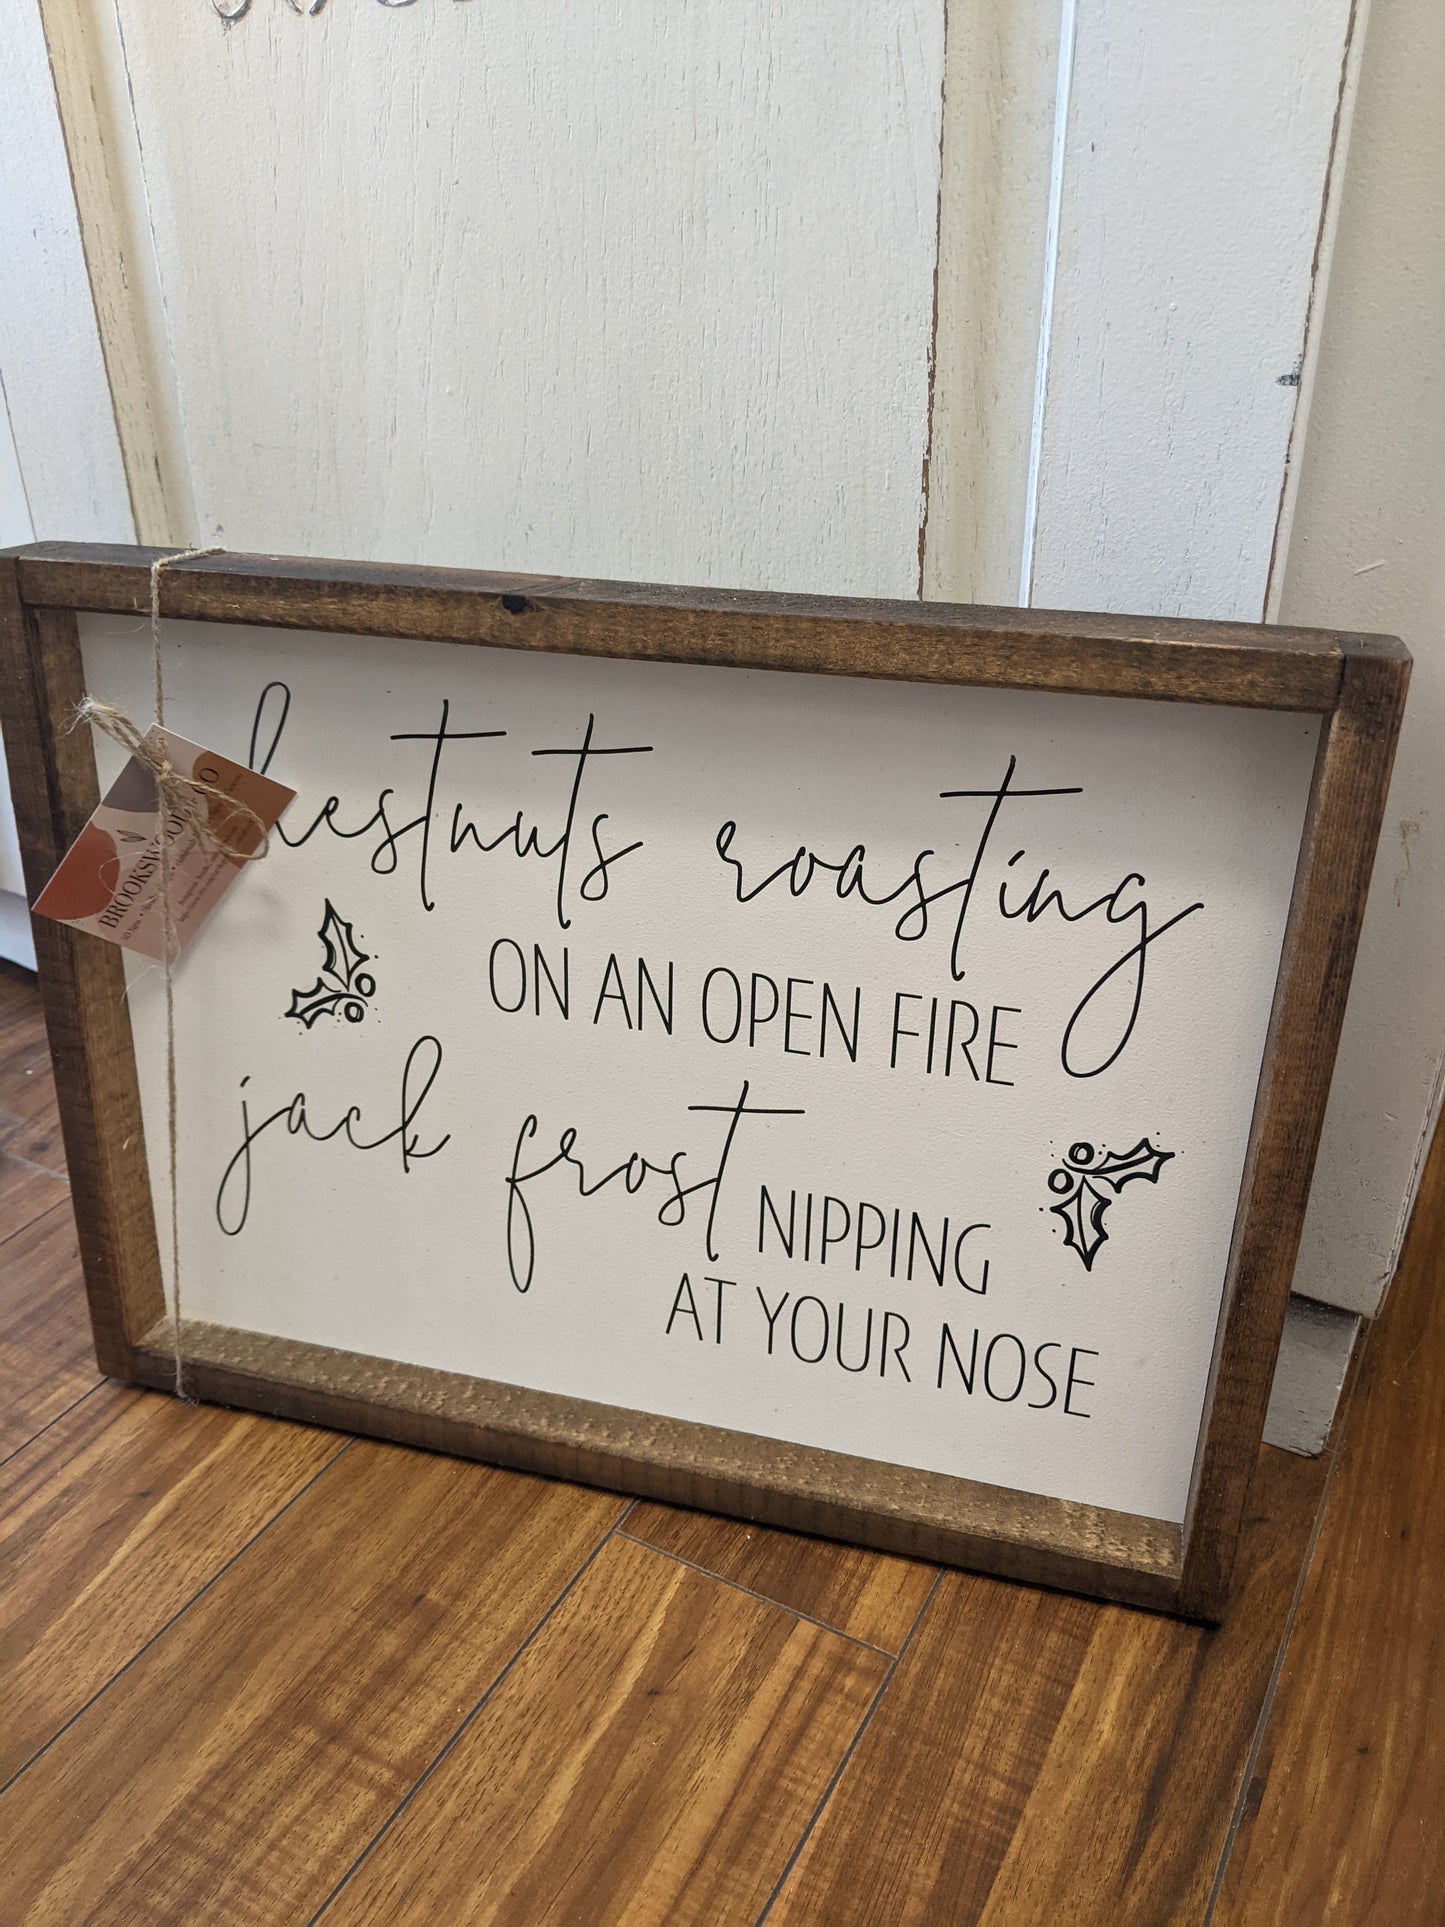 chestnuts roasting
ON AN OPEN FIRE
jack frost NIPPING
AT YOUR NOSE
BROOKSWOOD CO